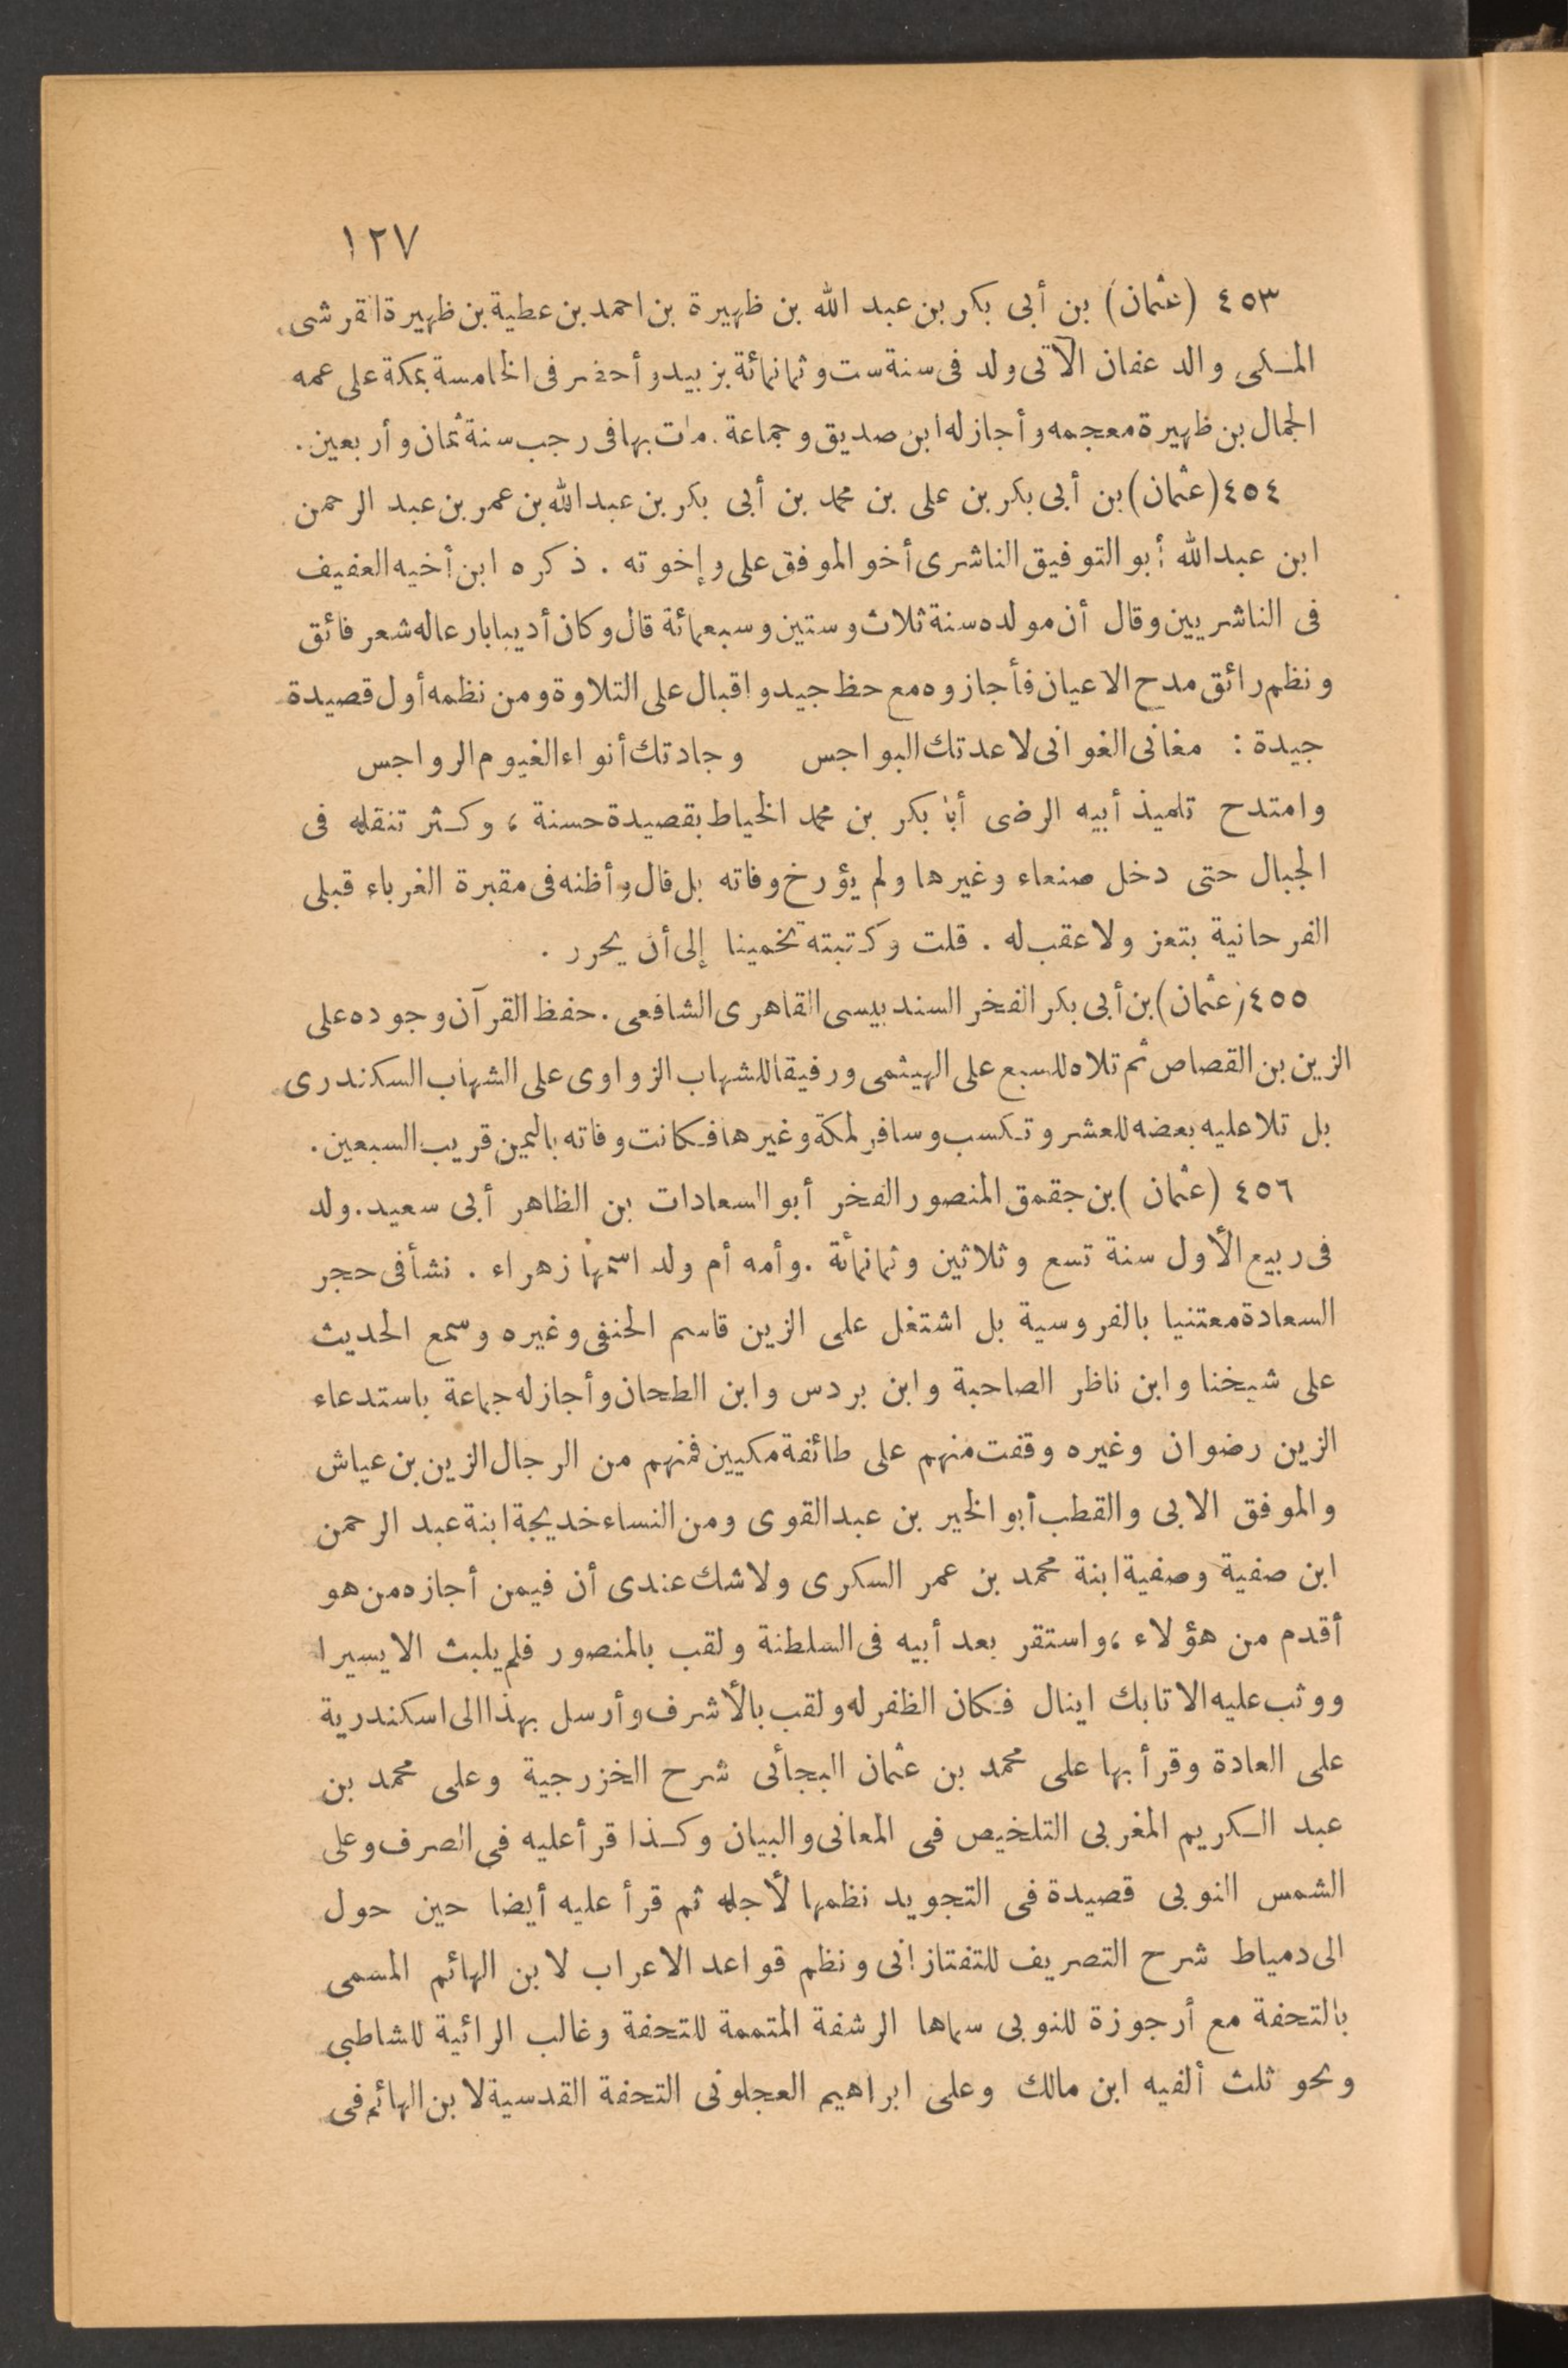 ١٢٧
٤٥٣ (عثمان) بن أبى بكر بن عبد الله بن ظهيرة بن احمد بن عطية بن ظهيرة القرشى
المكى والد عفان الآتى ولد فى سنة ست وثمانمائة بزبيد وأحضر فى الخامسة بمكة على عمه
الجمال بن ظهيرة معجمه وأجاز له ابن صديق وجماعة . مات بها فى رجب سنة ثمان وأربعين .
٤٥٤ (عثمان) بن أبى بكر بن على بن محمد بن أبى بكر بن عبد الله بن عمر بن عبد الرحمن
ابن عبد الله أبو التوفيق الناشرى أخو الموفق على وإخوته . ذكره ابن أخيه العفيف
فى الناشريين وقال أن مولده سنة ثلاث وستين وسبعمائة قال وكان أديبا بارعا له شعر فائق
ونظم رائق مدح الاعيان فأجازوه مع حظ جيد واقبال على التلاوة ومن نظمه أول قصيدة
جيدة : مغانى الغوانى لا عدتك البواجس وجادتك أنواء الغيوم الرواجس
وامتدح تلميذ أبيه الرضى أبا بكر بن محمد الخياط بقصيدة حسنة ، وكثر تنقله فى
الجبال حتى دخل صنعاء وغيرها ولم يؤرخ وفاته بل قال وأظنه فى مقبرة الغرباء قبلى
الفرحانية بتعز ولا عقب له . قلت وكتبته تخمينا إلى أن يحرر .
٤٥٥ (عثمان) بن أبى بكر الفخر السندبيسى القاهرى الشافعى . حفظ القرآن وجوده على
الزين بن القصاص ثم تلاه للسبع على الهيثمى ورفيقا للشهاب الزواوى على الشهاب السكندرى
بل تلا عليه بعضه للعشر وتكسب وسافر لمكة وغيرها فكانت وفاته باليمن قريب السبعين .
٤٥٦ (عثمان) بن جقمق المنصور الفخر أبو السعادات بن الظاهر أبى سعيد . ولد
فى ربيع الأول سنة تسع وثلاثين وثمانمائة . وأمه أم ولد اسمها زهراء . نشأ فى حجر
السعادة معتنيا بالفروسية بل اشتغل على الزين قاسم الحنفى وغيره وسمع الحديث
على شيخنا وابن ناظر الصاحبة وابن بردس وابن الطحان وأجاز له جماعة باستدعاء
الزين رضوان وغيره وقفت منهم على طائفة مكيين فمنهم من الرجال الزين بن عياش
والموفق الابى والقطب أبو الخير بن عبد القوى ومن النساء خديجة ابنة عبد الرحمن
ابن صفية وصفية ابنة محمد بن عمر السكرى ولا شك عندى أن فيمن أجازه من هو
أقدم من هؤلاء ، واستقر بعد أبيه فى السلطنة ولقب بالمنصور فلم يلبث الا يسيرا
ووثب عليه الاتابك اينال فكان الظفر له ولقب بالأشرف وأرسل بهذا الى اسكندرية
على العادة وقرأ بها على محمد بن عثمان البجائى شرح الخزرجية وعلى محمد بن
عبد الكريم المغربى التلخيص فى المعانى والبيان وكذا قرأ عليه فى الصرف وعلى
الشمس النوبى قصيدة فى التجويد نظمها لأجله ثم قرأ عليه أيضا حين حول
الى دمياط شرح التصريف للتفتازانى ونظم قواعد الاعراب لابن الهائم المسمى
بالتحفة مع أرجوزة للنوبى سماها الرشفة المتممة للتحفة وغالب الرائية للشاطبى
ونحو ثلث ألفيه ابن مالك وعلى ابراهيم العجلونى التحفة القدسية لابن الهائم فى